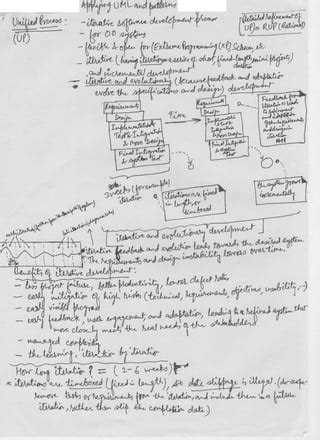 Applying UML and patterns
Unified Process :
(UP)
- iterative software development process
- for OO systems
- flexible & open for (Extreme Programming (XP) Scrum, etc.
- iterative (having iterations = series of short, fixed-length mini projects)
and incremental development
= iterative and evolutionary (because feedback and adaptation
evolve the specifications and design) development
detailed refinement of
UP = RUP (Rational)
Requirements
Design
Implementation &
Test & Integration
& More Design
Final Integration
& System Test
Time
Requirements
Design
Test & Integration
& More Design
Final Integration
& System Test
Feedback from
iteration N leads
to refinement
and adaptation
of requirements
and design in
iteration
3 weeks (for example)
iteration
iterations are fixed
in length, or
timeboxed
the system grows
incrementally
iterative and evolutionary development
iterative feedback and evolution leads towards the desired system.
The requirements and design instability lowers over time.
Benefits of iterative development:
- less project failure, better productivity, lower defect rates
- early mitigation of high risks (technical, requirements, objectives, usability, ..)
- early visible progress
- early feedback, user engagement, and adaptation, leading to a refined system that
more closely meets the real needs of the stakeholders
- managed complexity
- the learning, iteration by iteration
How long iteration? = (2-6 weeks)
* iterations are timeboxed (fixed in length), so date slippage is illegal.
remove tasks or requirements from the iteration, and include them in a future
iteration, rather than slip the completion date)